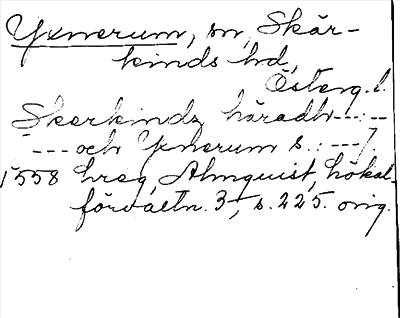 Yxnerum, sn, Skär-
kinds hd,
Österg. l.
Skerkindz häradh---:--
---och Yxnerum s.:---7.
1558 hreg, Almquist, Lokal-
förvaltn. 3, s. 225. orig.